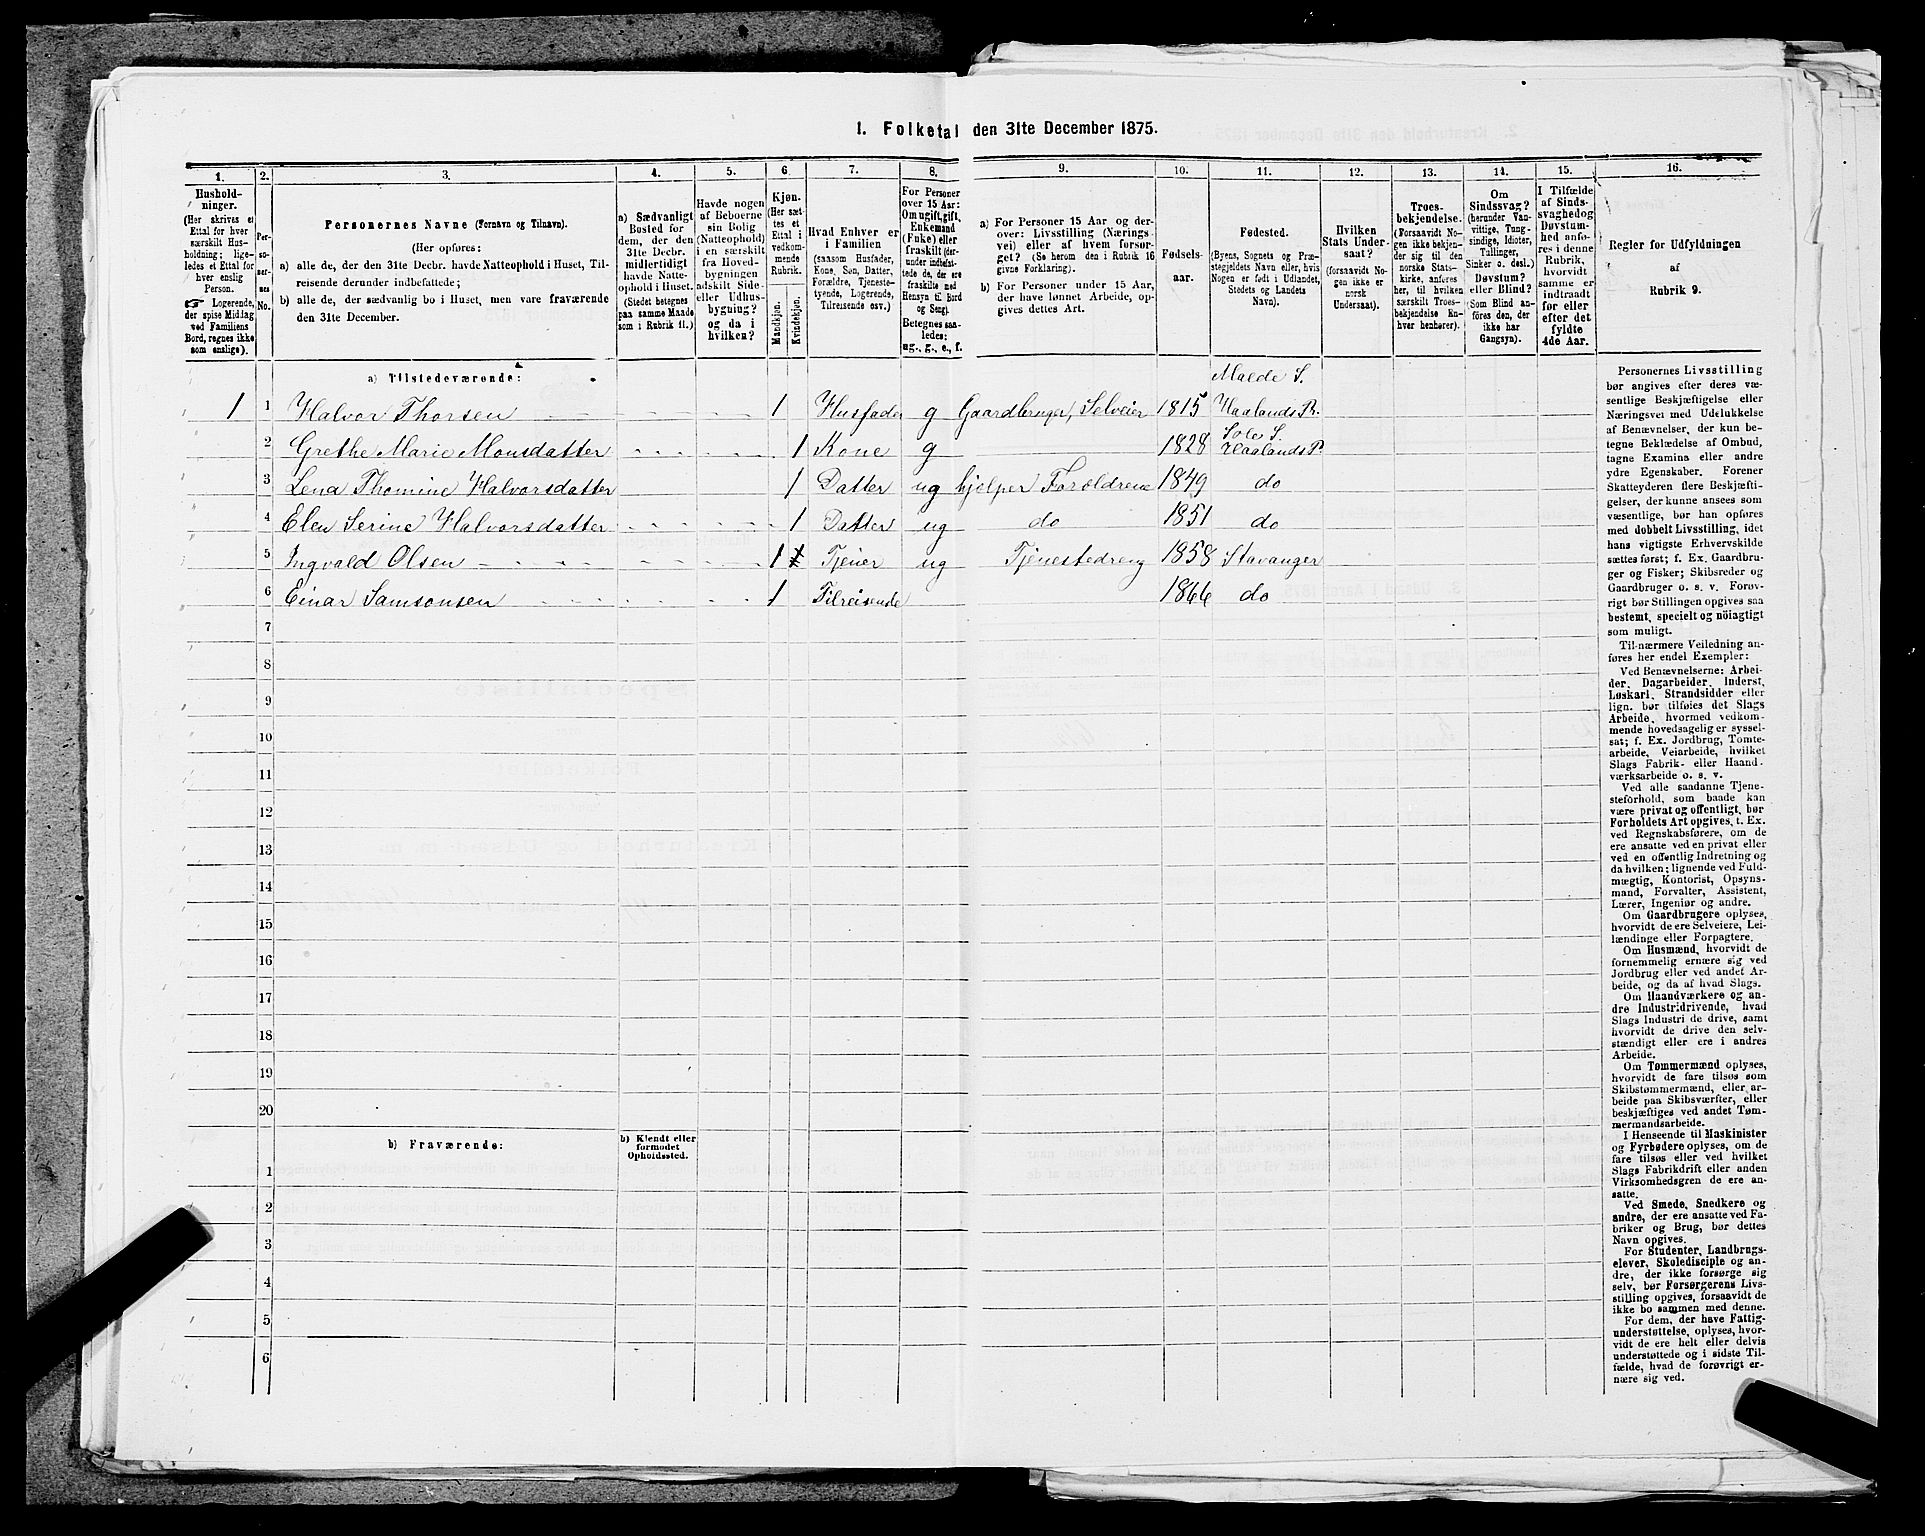 1. Folketal den 31te December 1875.
1. 2. 3. 4. 5. 6. 7. 8. 9. 10. 11. 12. 13. 14. 15. 16.
Hushold-
ninger.
(Her skrives et
Ettal for hver
særskilt Hus-
holdning; lige-
ledes et Ettal for
hver enslig
Person.
☞ Logerende,
der spise Middag
ved Familiens
Bord, regnes ikke
som enslige).
Per-
so-
ner-
nes
No.
Personernes Navne (Fornavn og Tilnavn).
(Her opføres:
a) alle de, der den 31te Decbr. havde Natteophold i Huset, Til-
reisende derunder indbefattede;
b) alle de, der sædvanlig bo i Huset, men vare fraværende
den 31te December.
a) Sædvanligt
Bosted for
dem, der den
31te Decbr.
midlertidigt
havde Natte-
ophold i Huset.
(Stedet betegnes
paa samme Maade
som i Rubrik 11.)
Havde nogen
af Beboerne
sin Bolig
(Natteophold)
i en særskilt
fra Hoved-
bygningen
adskilt Side-
eller Udhus-
bygning?
og da i
hvilken?
Kjøn.
(Her sæt-
tes et
Ettal i
vedkom-
mende
Rubrik.
Mandkjøn.
Kvindekjøn.
Hvad Enhver er
i Familien
(saasom Husfader,
Kone, Søn, Datter,
Forældre, Tjeneste-
tyende, Logerende,
Tilreisende osv.)
For Personer
over 15 Aar:
Om ugift, gift,
Enkemand
(Enke) eller
fraskilt (der-
under indbefat-
tede de, der ere
fraskilte med
Hensyn til Bord
og Seng).
Betegnes saa-
ledes:
ug., g., e., f.
a) For Personer 15 Aar og der-
over: Livsstilling (Nærings-
vei) eller af hvem forsør-
get? (Se herom den i Rubrik 16
givne Forklaring).
b) For Personer under 15 Aar,
der have lønnet Arbeide, op-
gives dettes Art.
Fødsels-
aar.
Fødested.
(Byens, Sognets og Præ-
stegjeldets Navn eller, hvis
Nogen er født i Udlandet,
Stedets og Landets
Navn).
Hvilken
Stats Under-
saat?
(forsaavidt No-
gen ikke er
norsk
Undersaat).
Troes-
bekjendelse.
(Forsaavidt No-
gen ikke bekjen-
der sig til den
norske Stats-
kirke, anføres
her, til hvilken
særskilt Troes-
bekjendelse En-
hver henhører).
Om
Sindssvag?
(herunder Van-
vittige, Tung-
sindige, Idioter,
Tullinger,
Sinker o. desl.)
Døvstum?
eller Blind?
(Som Blind an-
føres den, der
ikke har
Gangsyn).
I Tilfælde
af Sinds-
svaghed og
Døvstum-
hed anfø-
res i denne
Rubrik,
hvorvidt
samme er
indtraadt
før eller
efter det
fyldte
4de Aar.
Regler for Udfyldningen
af
Rubrik 9.
a) Tilstedeværende:
Malde S.
1 1 Halvor Thorsen 1 Husfader g Gaardbruger, Selveier 1815 Haalands Pr.
Sole S.
2 Grethe Marie Monsdatter 1 Kone g 1828 Haalands P.
3 Lena Thomine Halvorsdatter 1 Datter ug hjelper Foroldrene 1849 do
4 Elen Serine Halvorsdatter 1 Datter ug do 1851 do
5 Ingvald Olsen 1 Tjener ug Tjenestedreng 1858 Stavanger
6 Einar Samsonsen 1 Tilreisende 1866 do
7
8
9
10
11
12
13
14
15
16
17
18
19
20
b) Fraværende:
b) Kjendt eller
formodet
Opholdssted.
1
2
3
4
5
6
Personernes Livsstilling
bør angives efter deres væ-
sentlige Beskjæftigelse eller
Næringsvei med Udelukkelse
af Benævnelser, der kun be-
tegne Beklædelse af Ombud,
tagne Examina eller andre
ydre Egenskaber. Forener
Skatteyderen flere Beskjæfti-
gelser, der kunne ansees som
væsentlige, bør han opføres
med dobbelt Livsstilling, idet
hans vigtigste Erhvervskilde
sættes først; f. Ex. Gaardbru-
ger og Fisker; Skibsreder og
Gaardbruger o. s. v. Forøv-
rigt bør Stillingen opgives saa
bestemt, specielt og nøiagtigt
som muligt.
Til nærmere Veiledning an-
føres her endel Exempler:
Ved Benævnelserne: Arbei-
der, Dagarbeider, Inderst,
Løskarl, Strandsidder eller
lign. bør tilføies det Slags
Arbeide, hvormed vedkom-
mende hovedsagelig er syssel-
sat; f. Ex. Jordbrug, Tomte-
arbeide, Veiarbeide, hvilket
Slags Fabrik- eller Haand-
værksarbeide o. s. v.
Ved alle saadanne Tjene-
steforhold, som baade kan
være privat og offentligt, bør
Forholdets Art opgives, t. Ex.
ved Regnskabsførere, om de
ere ansatte ved en privat eller
ved en offentlig Indretning og
da hvilken; lignende ved Fuld-
mægtig, Kontorist, Opsyns-
mand, Forvalter, Assistent,
Lærer, Ingeniør og andre.
Om Gaardbrugere oplyses,
hvorvidt de ere Selveiere, Lei-
lændinge eller Forpagtere.
Om Husmænd, hvorvidt de
fornemmelig ernære sig ved
Jordbrug eller ved andet Ar-
beide, og da af hvad Slags.
Om Haandværkere og an-
dre Industridrivende, hvad
Slags Industri de drive, samt
hvorvidt de drive den selv-
stændigt eller ere i andres
Arbeide.
Om Tømmermænd oplyses,
hvorvidt de fare tilsøs som
Skibstømmermænd, eller ar-
beide paa Skibsværfter, eller
beskjæftiges ved andet Tøm-
mermandsarbeide.
I Henseende til Maskinister
og Fyrbødere oplyses, om de
fare tilsøs eller ved hvilket
Slags Fabrikdrift eller anden
Virksomhedsgren de ere an-
satte.
Ved Smede, Snedkere og
andre, der ere ansatte ved Fa-
briker og Brug, bør dettes
Navn opgives.
For Studenter, Landbrugs-
elever, Skoledisciple og an-
dre, der ikke forsørge sig
selv, bør Forsørgerens Livs-
stilling opgives, forsaavidt de
ikke bo sammen med denne.
For dem, der have Fattig-
understøttelse, oplyses, hvor-
vidt de ere helt eller delvis
understøttede og i sidste Til-
fælde, hvad de forøvrigt er-
nære sig ved.